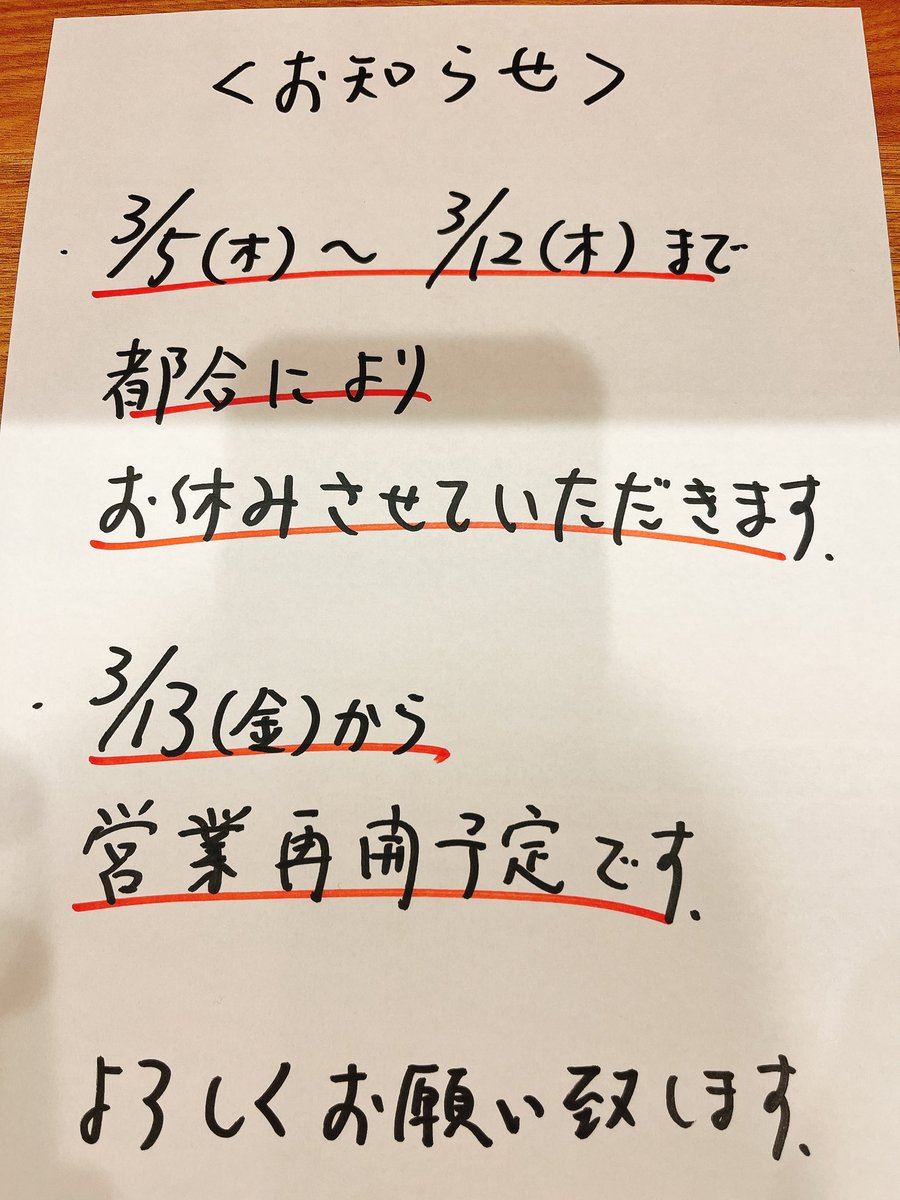 <お知らせ>
・3/5(木)〜 3/12(木)まで
都合により
お休みさせていただきます.
・3/13(金)から
営業再開予定です.
よろしくお願い致します.